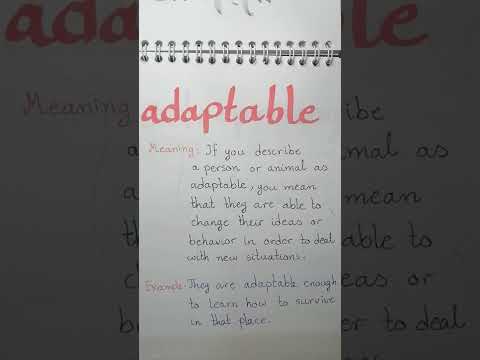 adaptable
Meaning: If you describe
a person or animal as
adaptable, you mean
that they are able to
change their ideas or
behavior in order to deal
with new situations.
Example: They are adaptable enough
to learn how to survive
in that place.